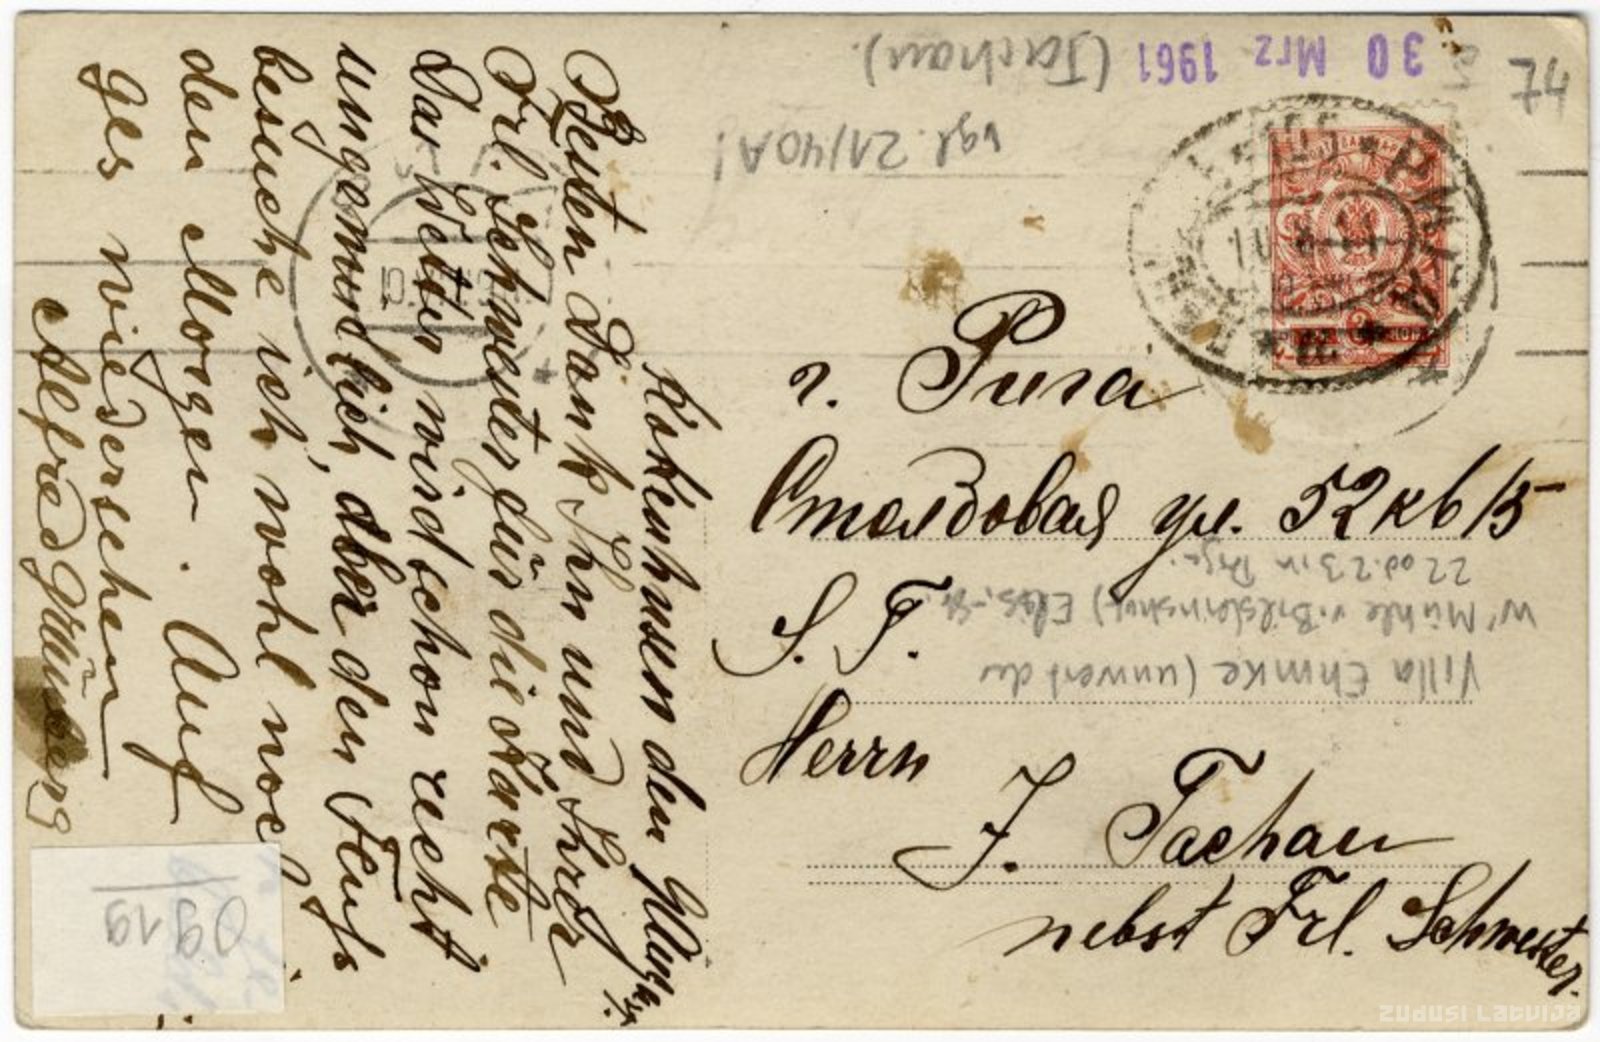 Kokenhusen den
Besten Dank Ihn und Ihrer
Frl. Schwester für die Karte
Das Wetter wird schon recht
ungemündlich, aber den Teufs
besuche ich wohl noch
den Morgen. Auf
ges wiedersehen
Alfred Grünberg
74
30 Mrz 1961 (Tachau).
vgl. 21/40A!
РИГА
г. Рига
Столбовая ул. 52 кв 15
22 od. 23 in
W' Mühle v. Bilderlinshof)
Villa Ehmke (unweit der
S. T.
Herrn
J. Tachau
nebst Frl. Schwester.
0919
ZUDUSI LATVIJA